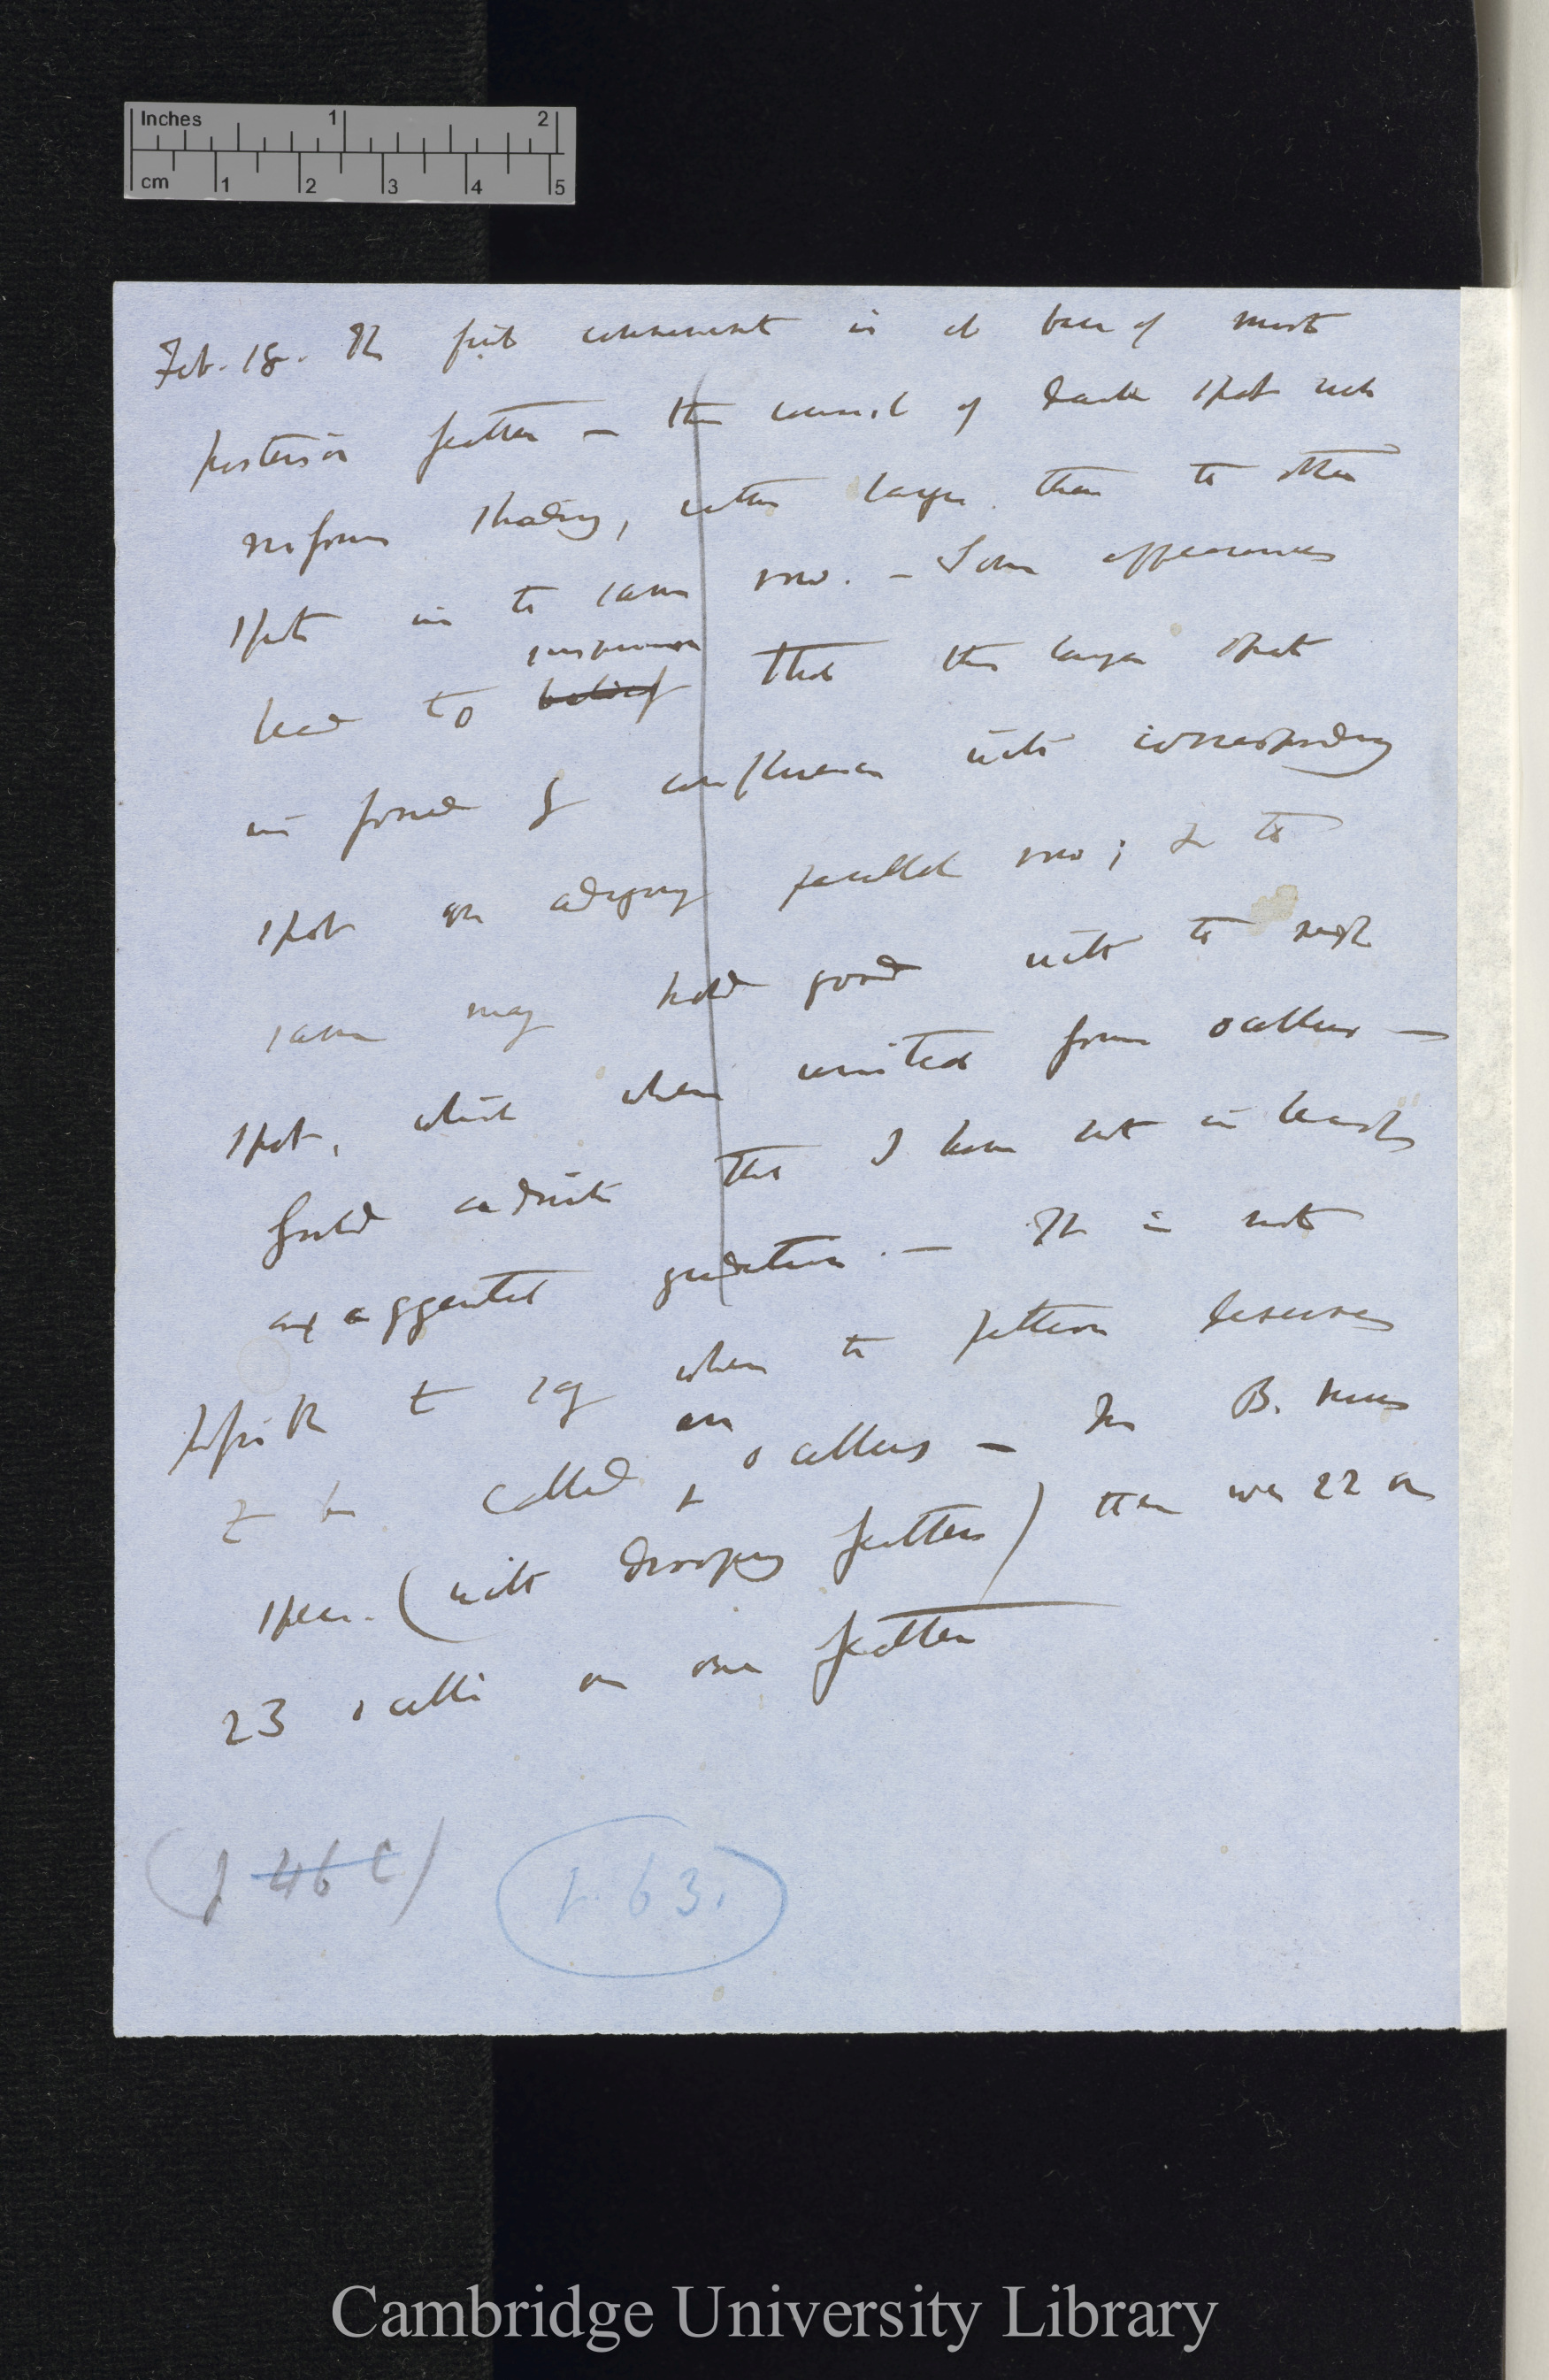 Inches 1 2
cm 1 2 3 4 5
Feb. 18. The first commencement is at base of most
posterior feather — this consists of dark spot with
reniform shading, rather larger than the other
spots in the same row. — Some appearances
suspicion
lead to belief that this larger spot
is formed by confluence with corresponding
spot on adjoining parallel row; & the
same may hold good with the next
spot, which when united form ocellus —
Gould admits that I have not in least
exaggerated gradation. — It is not
possible to say when the pattern deserves
an
to be called ocellus — In B. Mus
spec. (with drooping feathers) there was 22 or
23 ocelli on one feather
(p 46 c)
p. 63.
Cambridge University Library